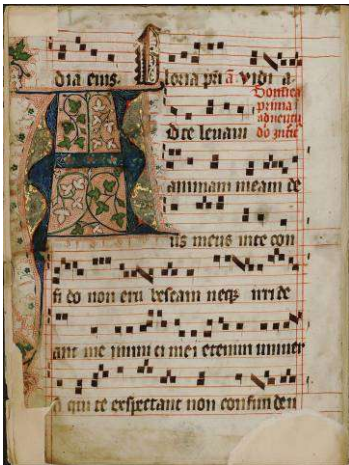 dia eius. Gloria pri ā vidi a
Dominica
prima
adventu
do͂ intit͂
d te levaui
animam meam de
us meus in te con
fi do non eru bescam neqz irri de
ant me inimi ci mei etenim univer
si qui te exspectant non confunden